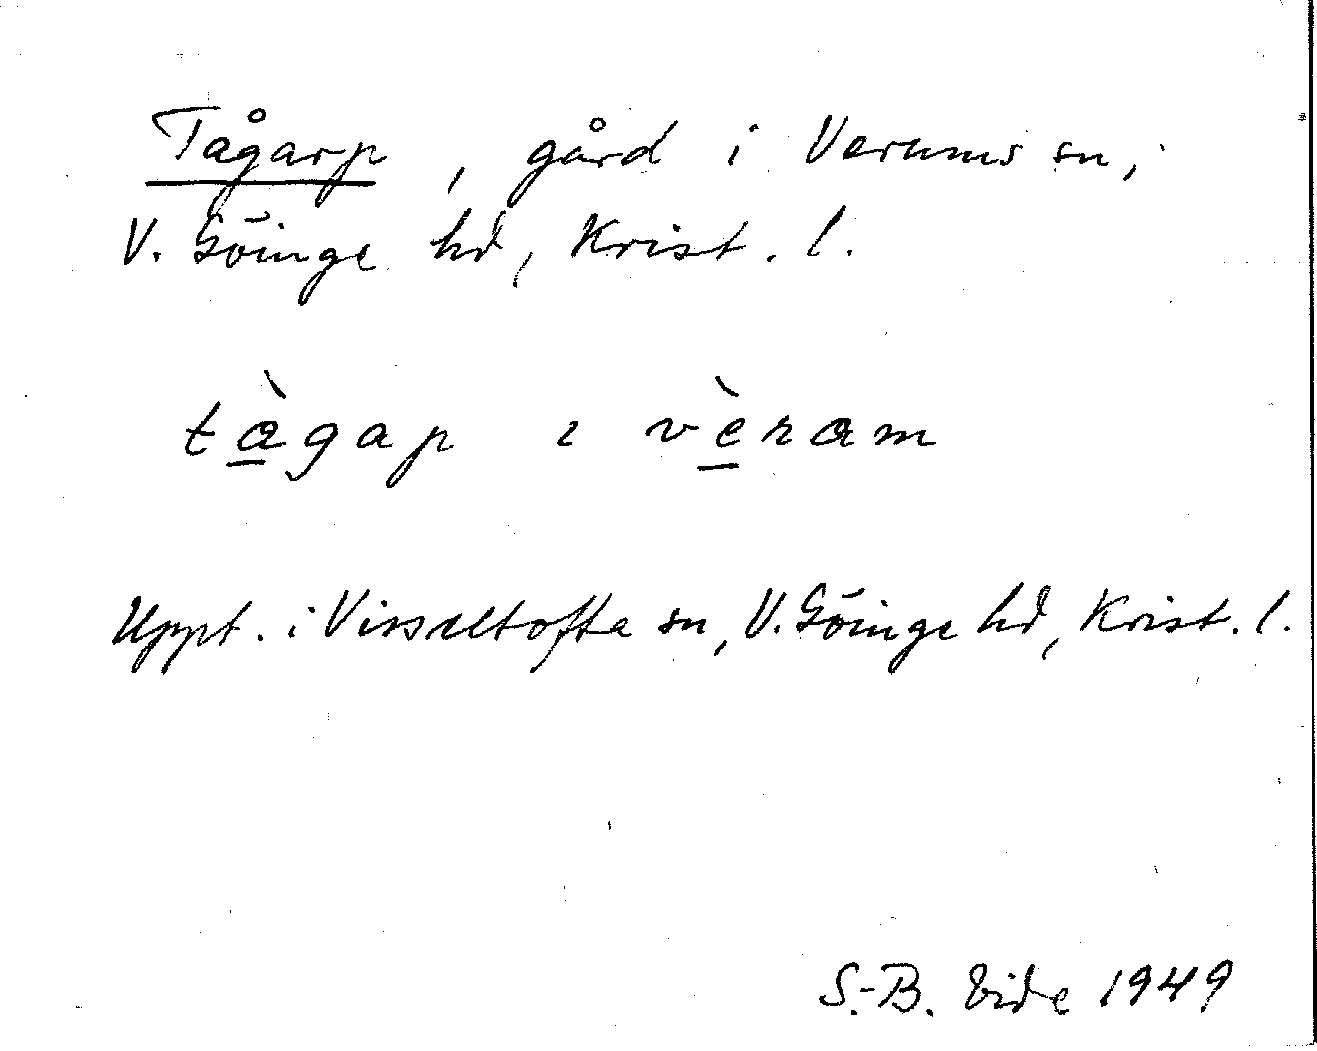 Tågarp, gård i Verums sn,
V. Göinge hd, Krist. l.
tàgap ı vèram
Uppt. i Visseltofta sn, V. Göinge hd, Krist. l.
S.-B. Vide 1949